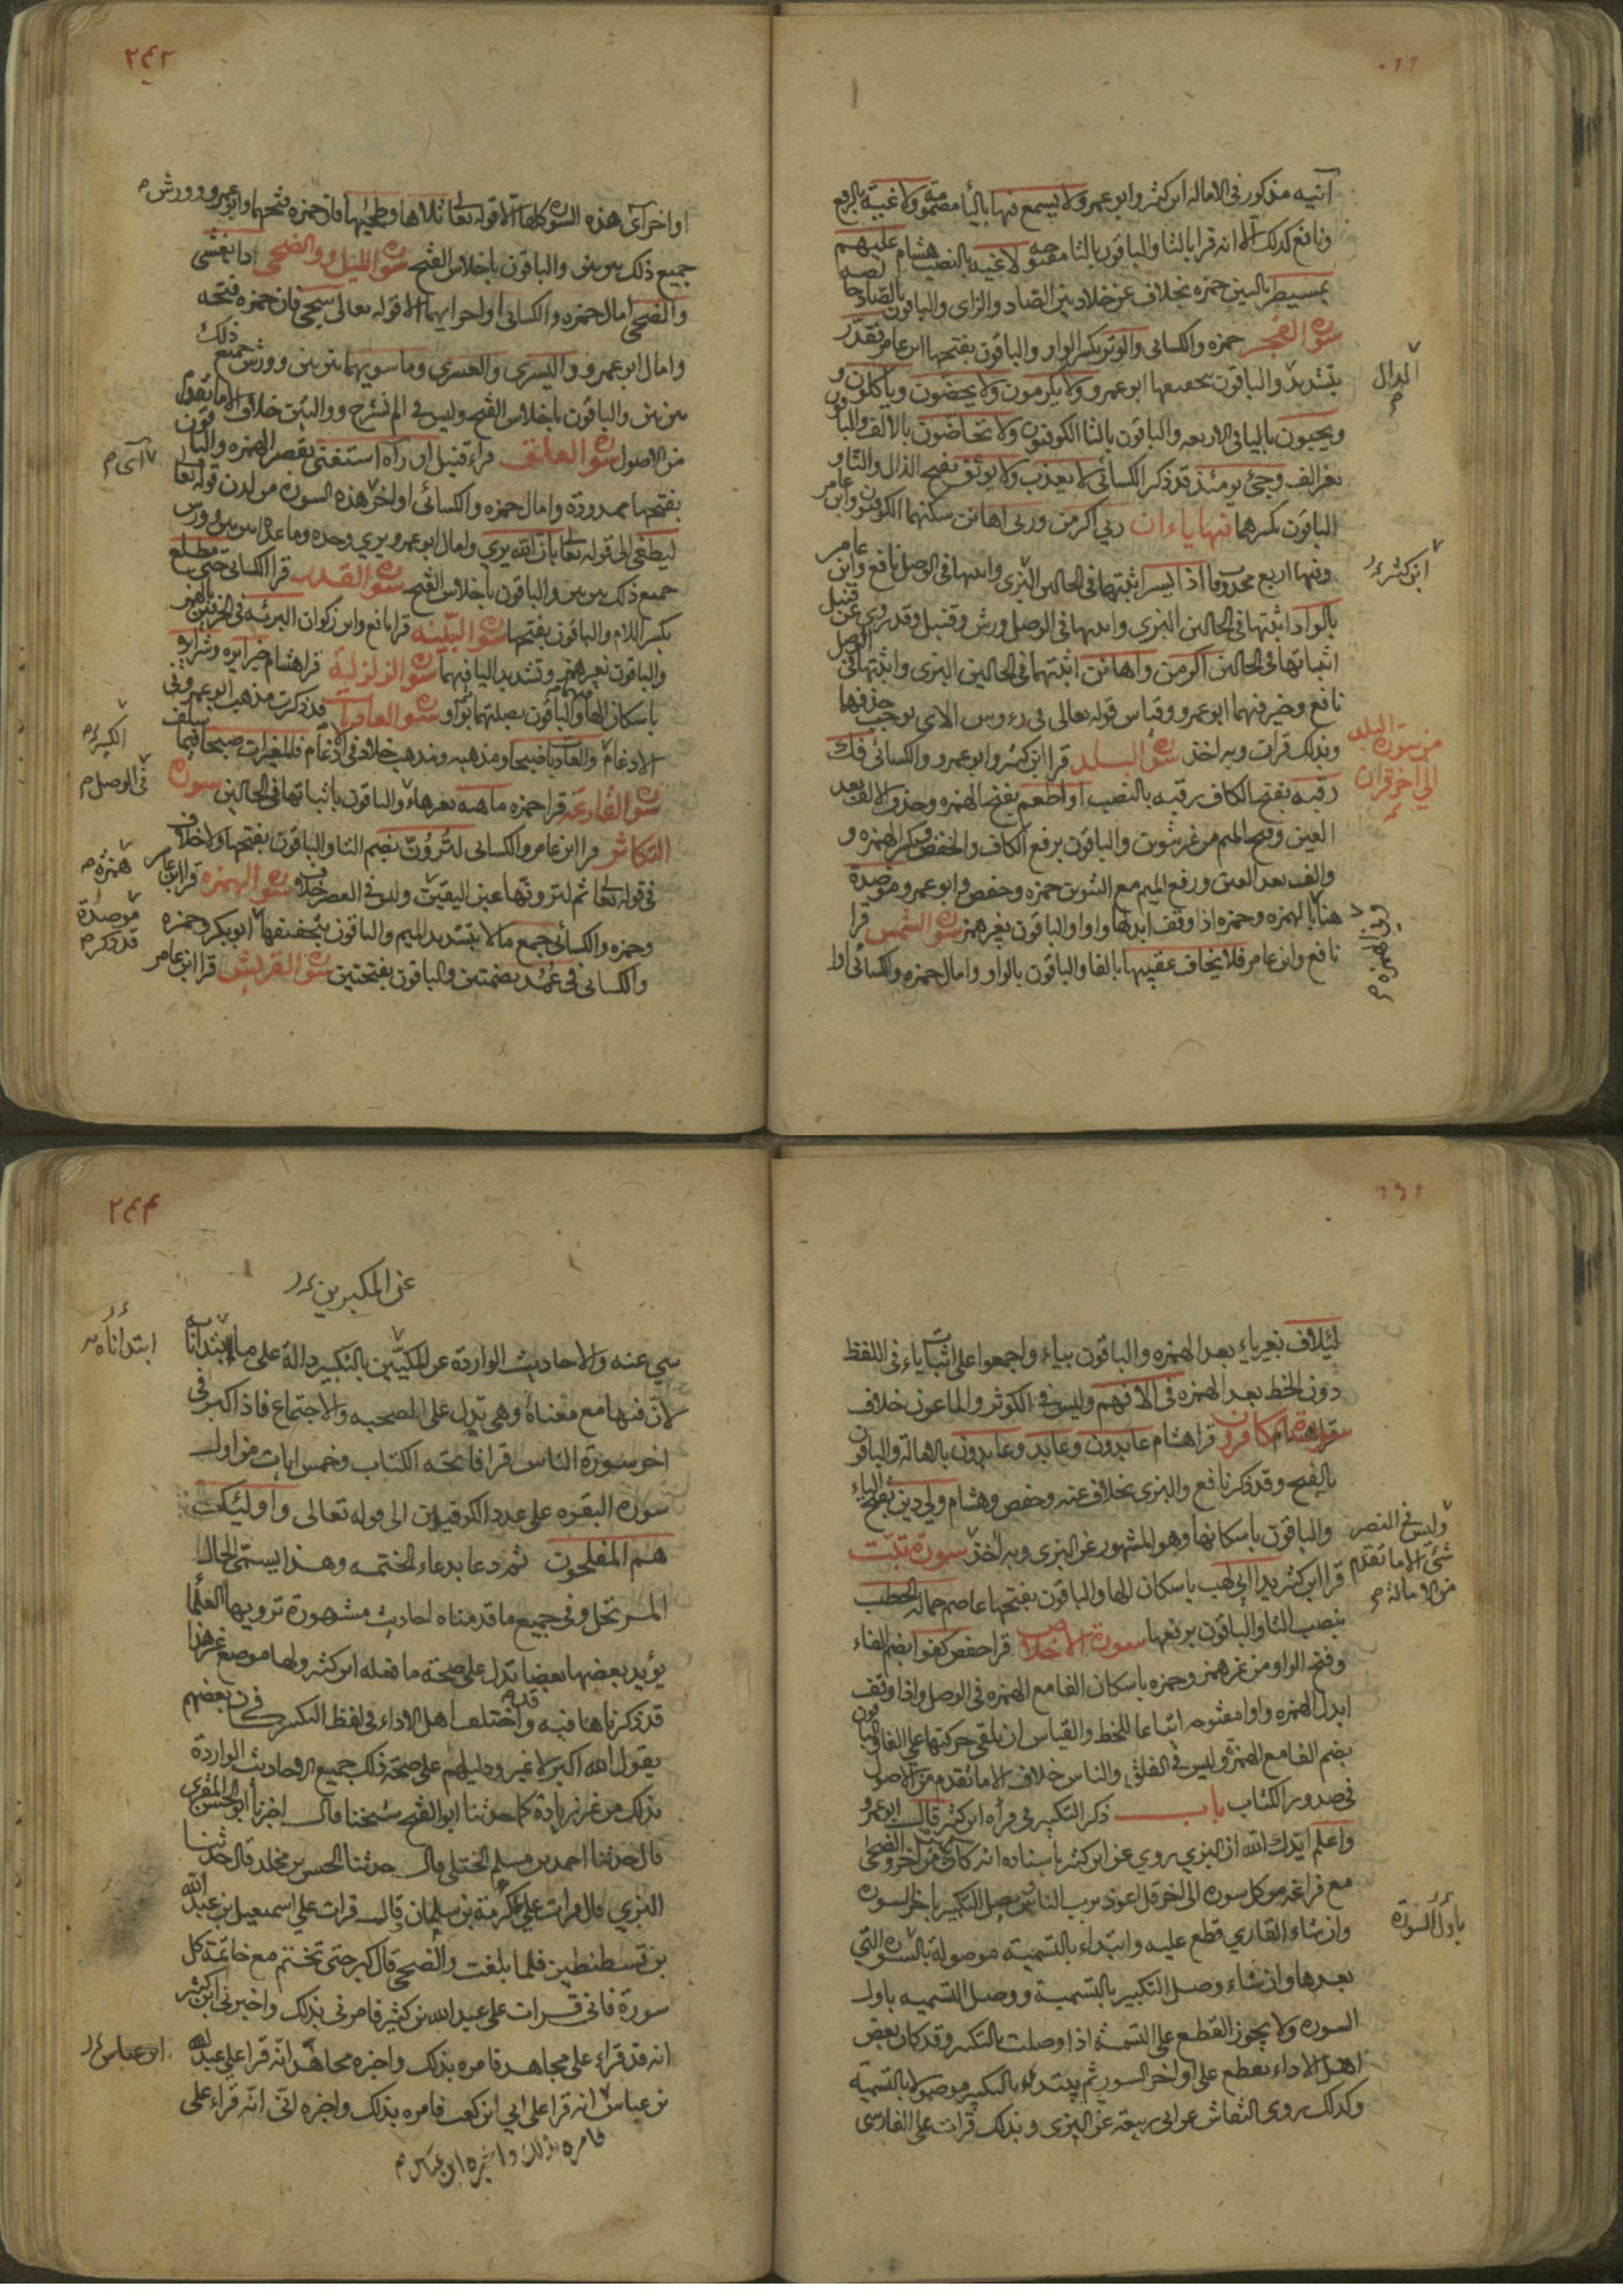 آنية مذكور في الاماله ابن كثير وابو عمرو لا يسمع فيها بالياء مضمومة ولاغية بالرفع
ونافع كذلك الا انه قرا بالتا والباقون بالتا مفتوحه لاغيه بالنصب هشام عليهم
بمسيطر بالسين حمزه بخلاف عن خلاد بين الصاد والزاى والباقون بالصاد خالصه
سورة الفجر حمزه والكسائى والوتر بكسر الواو والباقون بفتحها ابن عامر فقدّر
بتشديد والباقون بتخفيفها ابو عمرو ولا يكرمون ولا يحضون وياكلون و
ويحبون باليا فى الاربعه والباقون بالتا الكوفيون ولا تحاضون بالالف والباقون
بغير الف وجئ يومئذ قد ذكر الكسائى لا يعذب ولا يوثق بفتح الذال والثا و
الباقون بكسرهما فيها ياءان ربى اكرمن وربى اهانن سكنهما الكوفيون وابن عامر
وفيها اربع محذوفات اذا يسر اثبتها فى الحالين البزى واثبتها فى الوصل نافع وابن عامر
بالواد اثبتها فى الحالين البزى واثبتها فى الوصل ورش وقنبل وقد روى عن قنبل
اثباتها فى الحالين اكرمن واهانن اثبتهما فى الحالين البزى واثبتهما فى الوصل
نافع وخير فيهما ابو عمرو وقياس قوله تعالى فى رءوس الاى يوجب حذفها
وبذلك قرات وبه اخذ سورة البلد قرا ابن كثير وابو عمرو والكسائى فك
رقبه بفتح الكاف رقبه بالنصب او اطعم بفتح الهمزه وحذف الالف بعد
العين وفتح الميم من غير تنوين والباقون برفع الكاف والخفض وكسر الهمزه و
والف بعد العين ورفع الميم مع التنوين حمزه وحفص وابو عمرو موصدة
هنا بالهمزه وحمزه اذا وقف ابدلها واوا والباقون بغير همز سورة الشمس قرا
نافع وابن عامر فلا يخاف عقبيها بالفا والباقون بالواو وامال حمزه والكسائى اوا
الدال
ابن كثير
من سورة البلد
الى اخر قران
وفى الهمزه
٢٤٢
اواخر آى هذه السورة كلها الا قوله تعالى تلاها وطحيها فان حمزه فتحهما وابو عمرو وورش
جميع ذلك بين بين والباقون باخلاص الفتح سورة الليل ووالضحى اذا يغشى
والضحى امال حمزه والكسائى اواخر ايهما الا قوله تعالى سجى فان حمزه فتحه
وامال ابو عمرو واليسرى والعسرى وما سويهما بين بين وورش جميع ذلك
بين بين والباقون باخلاص الفتح وليس فى الم نشرح ووالتين خلاف الا ما تقدم
من الاصول سورة العلق قراء قنبل ان رآه استغنى بقصر الهمزه والباقون
بفتحها ممدودة وامال حمزه والكسائى اواخر هذه السوره من لدن قوله تعالى
ليطغى الى قوله تعالى بان الله يرى وامال ابو عمرو يرى وحده وما عداه بين بين وورش
جميع ذلك بين بين والباقون باخلاص الفتح سورة القدر قرا الكسائى حتى مطلع
بكسر اللام والباقون بفتحها سورة البيّنه قرا نافع وابن ذكوان البريّه فى الحرفين بالهمز
والباقون بغير همز وتشديد اليا فيهما سورة الزلزلة قرا هشام خيرا يره وشرا يره
باسكان الها فيهما والباقون بصلتهما بواو سورة العاديات قد ذكرت مذهب ابو عمرو فى
الادغام والعاديات ضبحا ومذهبه ومذهب خلاد فى الادغام فالمغيرات صبحا فيما سلف
سورة القارعه قرا حمزه ماهيه بغير ها والباقون باثباتها فى الحالين سورة
التكاثر قرا ابن عامر والكسائى لترونّ بضم التا والباقون بفتحها ولا خلاف
فى قوله تعالى ثم لترونها عين اليقين وليس فى العصر خلاف سورة الهمزه قرا ابن عامر
وحمزه والكسائى جمع مالا بتشديد الميم والباقون بتخفيفها ابو بكر وحمزه
والكسائى فى عمد بضمتين والباقون بفتحتين سورة القريش قرا ابن عامر
آى
الكبير
فى الوصل
همزة
موصدة
قد ذكر
لئلاف بغير ياء بعد الهمزه والباقون بياء واجمعوا على اثبات ياء فى اللفظ
دون الخط بعد الهمزه فى الافهم وليس فى الكوثر والماعون خلاف
سورة كافرون قرا هشام عابدون وعابد وعابدون بالامالة والباقون
بالفتح وقد ذكر نافع والبزى بخلاف عنه وحفص وهشام ولى دين بفتح الياء
والباقون باسكانها وهو المشهور عن البزى وبه اخذ سورة تبّت
قرا ابن كثير يدا ابى لهب باسكان الها والباقون بفتحها عاصم حمالة الحطب
بنصب التا والباقون برفعها سورة الاخلاص قرا حفص كفوا بضم الفاء
وفتح الواو من غير همز وحمزه باسكان الفا مع الهمزه فى الوصل واذا وقف
ابدل الهمزه واوا مفتوحه اتباعا للخط والقياس ان يلقى حركتها على الفا والباقون
بضم الفا مع الهمزة وليس فى الفلق والناس خلاف الا ما تقدم من الاصول
فى صدور الكتاب باب ذكر التكبير فى قرأه ابن كثير قال ابو عمرو
واعلم ايّدك الله ان البزى روى عن ابن كثير باسناده انه كان يكبر من اخر والضحى
مع فراغه من كل سوره الى اخر قل اعوذ برب الناس يصل التكبير باخر السوره
وان شاء القارى قطع عليه وابتداء بالتسمية موصولة بالسورة التى
بعدها وان شاء وصل التكبير بالتسمية ووصل التسميه باول
السوره ولا يجوز القطع على التسمية اذا وصلت بالتكبير وقد كان بعض
اهل الاداء يقطع على اواخر السور ثم يبتدئ بالتكبير موصولا بالتسمية
وكذلك روى النقاش عن ابى ربيعة عن البزى وبذلك قرات على الفارسى
وليس فى النصر
شئ الا ما تقدم
من الامالة
باول السورة
٢٤٤
عن المكبرين
سى عنه والاحاديث الواردة عن المكيّين بالتكبير دالة على ما ابتدأنا به
لان فيها مع معناه وهى تدل على الصحبه والاجتماع فاذا كبر فى
اخر سورة الناس قرا فاتحه الكتاب وخمس ايات من اول
سوره البقره على عدد الكوفيين الى قوله تعالى واولئك
هم المفلحون ثم دعا بدعاء الختمه وهذا يسمّى الحال
المرتحل وفى جميع ما قدمناه احاديث مشهورة ترويها العلما
يؤيد بعضها بعضا تدل على صحة ما فعله ابن كثير ولها موضع غير هذا
قد ذكرناها فيه واختلف اهل الاداء فى لفظ التكبير فكان بعضهم
يقول الله اكبر لا غير ودليلهم على صحة ذلك جميع الاحاديث الواردة
بذلك من غير زيادة كما حدثنا ابو الفتح شيخنا قال اخبرنا ابو الحسن المقرى
قال حدثنا احمد بن مسلم الختلى قال حدثنا الحسن بن مخلد قال حدثنا
البزى قال قرات على عكرمة بن سليمان قال قرات على اسمعيل بن عبد الله
بن قسطنطين فلما بلغت والضحى قال كبر حتى تختم مع خاتمة كل
سورة فانى قرات على عبد الله بن كثير فامرنى بذلك واخبرنى ابن كثير
انه قد قراء على مجاهد فامره بذلك واخبره مجاهد انه قرا على عبد الله
بن عباس انه قرا على ابى ابن كعب فامره بذلك واخبره ابىّ انه قراء على
فامره بذلك واخبره ابن عباس
ابتدأناه
ابن عباس